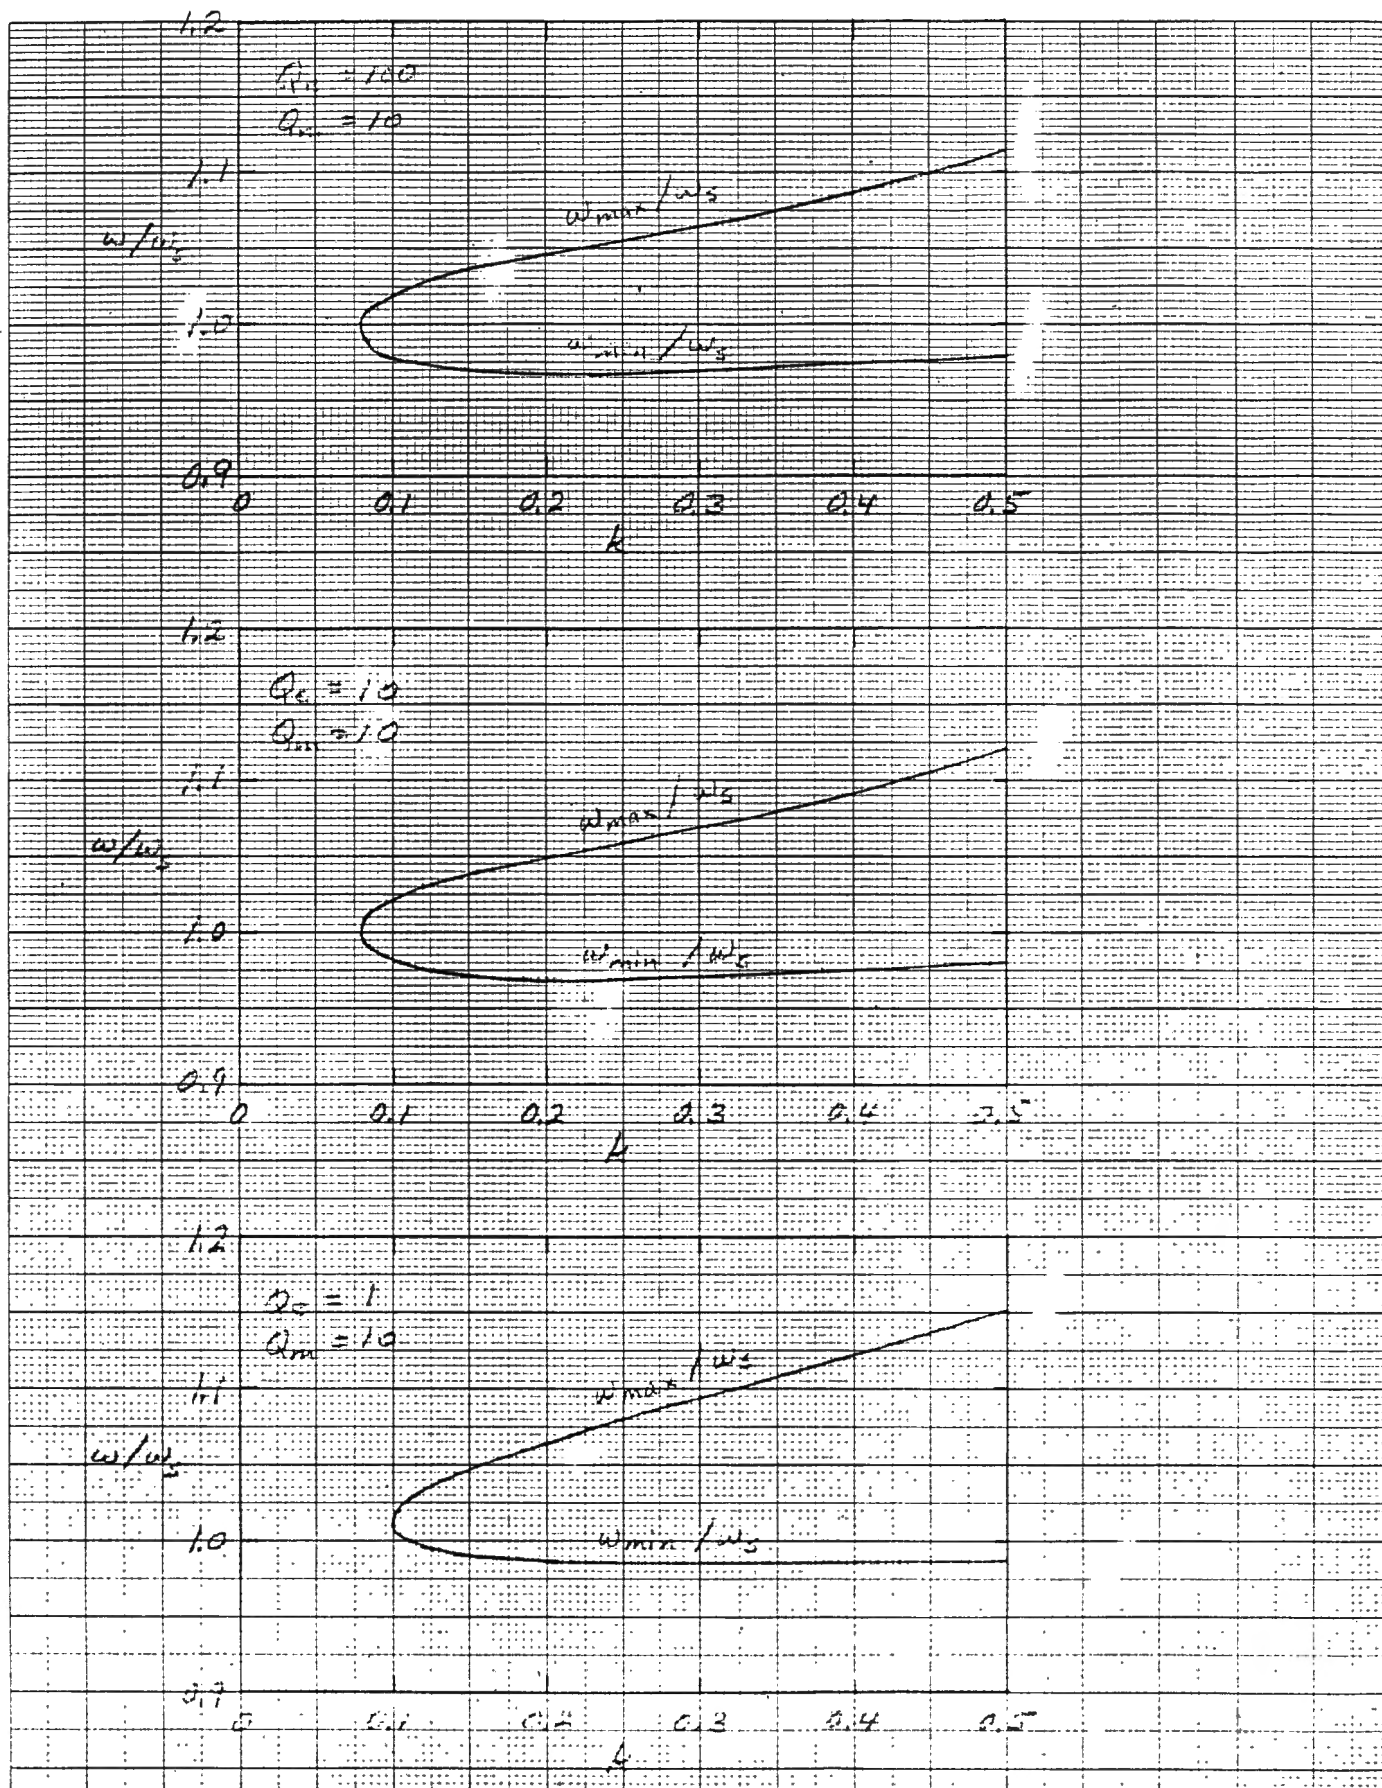 1.2
= 100
Qm = 10
1.1
ωmax/ωs
ω/ωs
1.0
ωmin/ωs
0.9
0 0.1 0.2 0.3 0.4 0.5
k
1.2
Qε = 10
Qm = 10
1.1
ωmax/ωs
ω/ωs
1.0
ωmin/ωs
0.9
0 0.1 0.2 0.3 0.4 0.5
k
1.2
Qε = 1
Qm = 10
1.1
ωmax/ωs
ω/ωs
1.0
ωmin/ωs
0.9
0 0.1 0.2 0.3 0.4 0.5
k